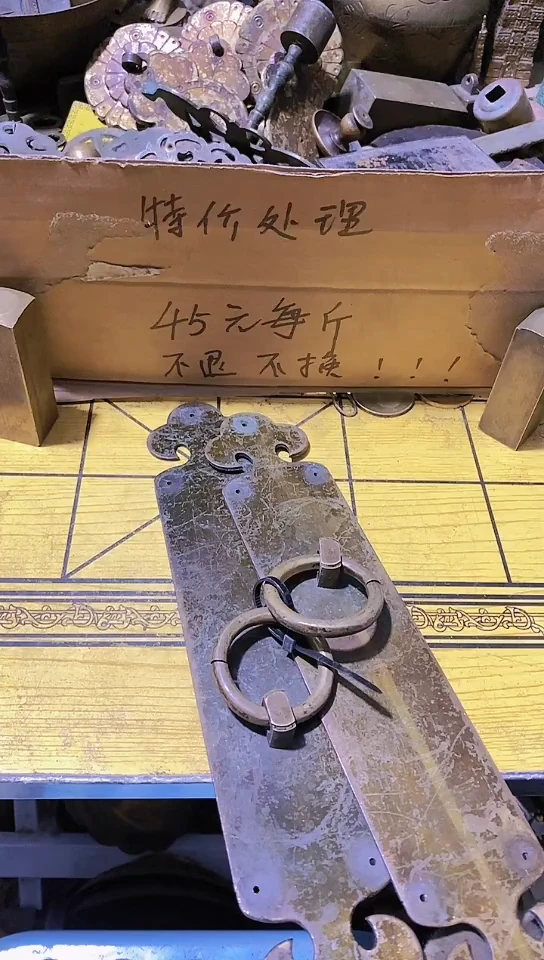 特价处理
45元每斤
不退不换!!!